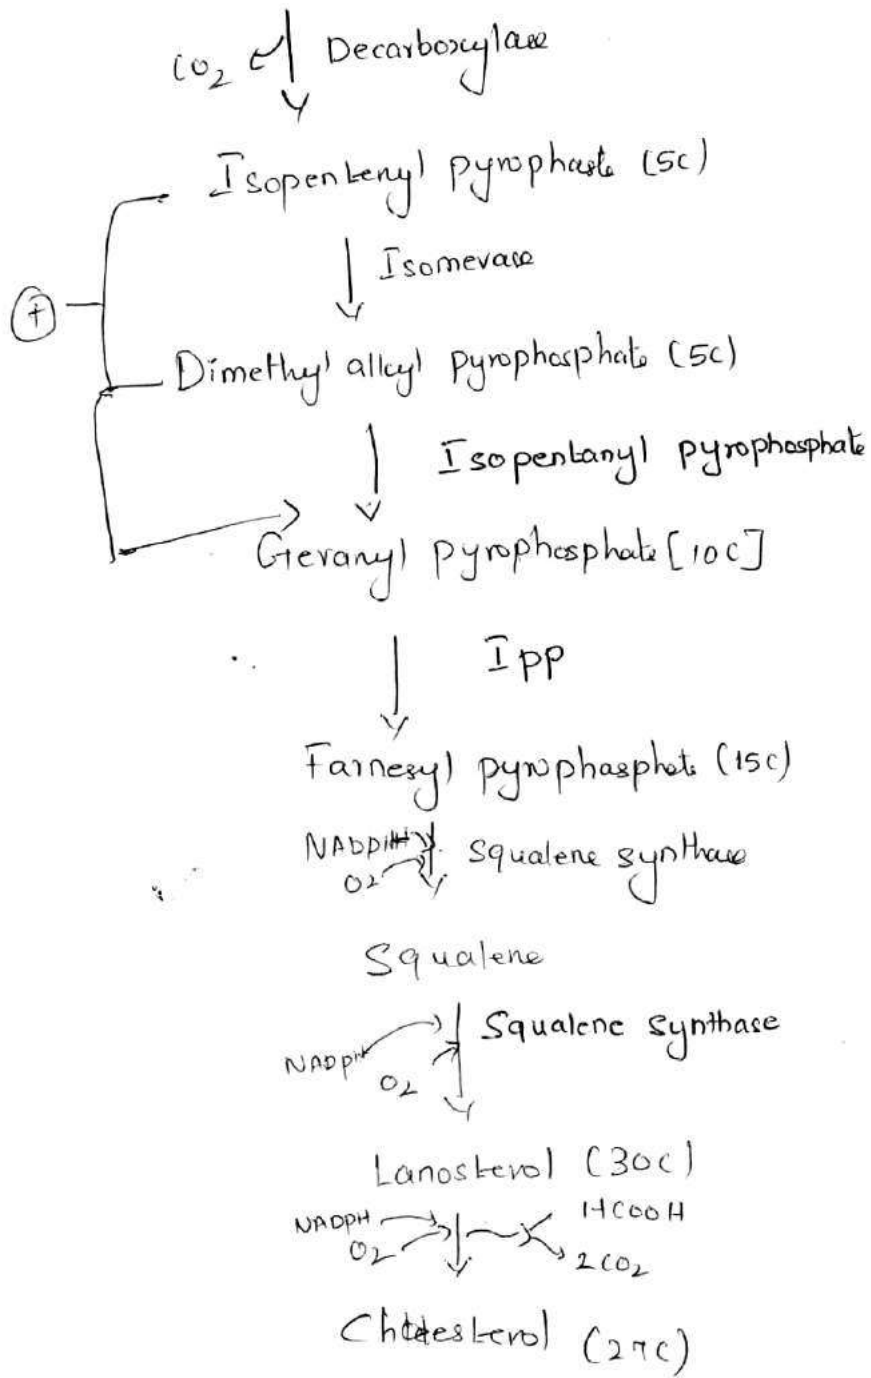 CO2 Decarboxylase
Isopentenyl pyrophaste (5C)
Isomerase
+
Dimethyl allyl pyrophosphate (5C)
Isopentanyl pyrophosphate
Geranyl pyrophosphate [10C]
IPP
Farnesyl pyrophasphate (15C)
NADPH
O2
Squalene synthase
Squalene
Squalene synthase
NADPH
O2
Lanosterol (30C)
NADPH
O2
HCOOH
2CO2
Cholesterol (27C)